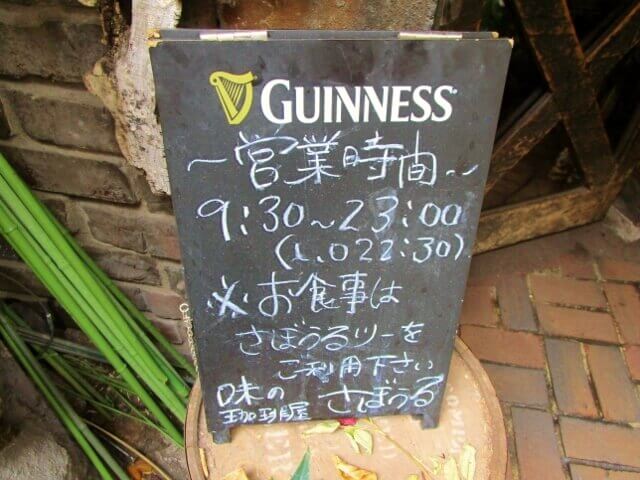 GUINNESS
～営業時間～
9:30～23:00
(L.O 22:30)
※お食事は
さぼうるツーを
ご利用下さい
味の
珈琲屋 さぼうる